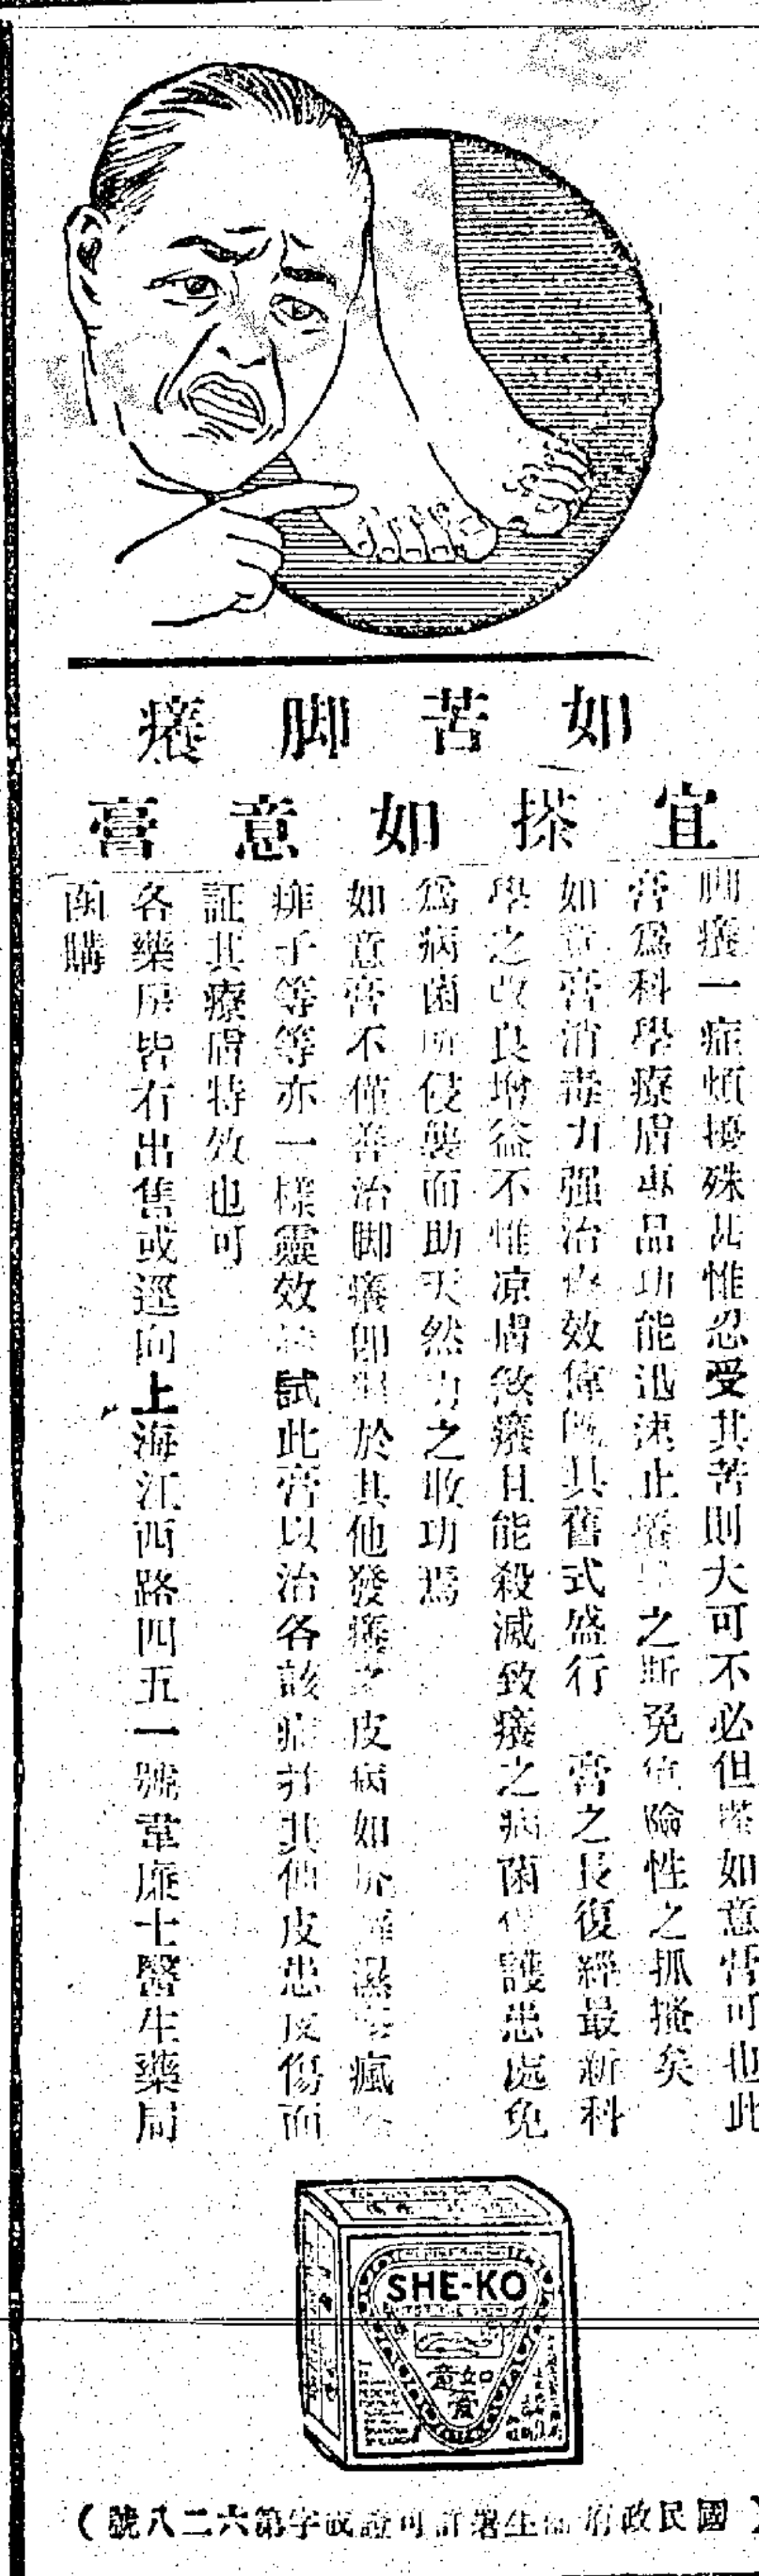 如苦脚癢
宜搽如意膏
脚癢一症煩擾殊甚惟忍受其苦則大可不必但搽如意膏可也此
膏爲科學療膚專品功能迅速止癢之斯免危險性之抓搔矣
如意膏消毒力强治療效偉既具舊式盛行膏之長復經最新科
學之改良增益不惟凉膚煞癢且能殺滅致癢之病菌保護患處免
爲病菌所侵襲而助天然力之收功焉
如意膏不僅善治脚癢即對於其他發癢之皮病如疥癬濕瘋
痱子等等亦一樣靈效試此膏以治各該病并其他皮患皮傷而
証其療膚特效也可
各藥房皆有出售或逕向上海江西路四五一號韋廉士醫生藥局
函購
SHE-KO
如意膏
（國民政府衛生署許可證成字第六二八號）